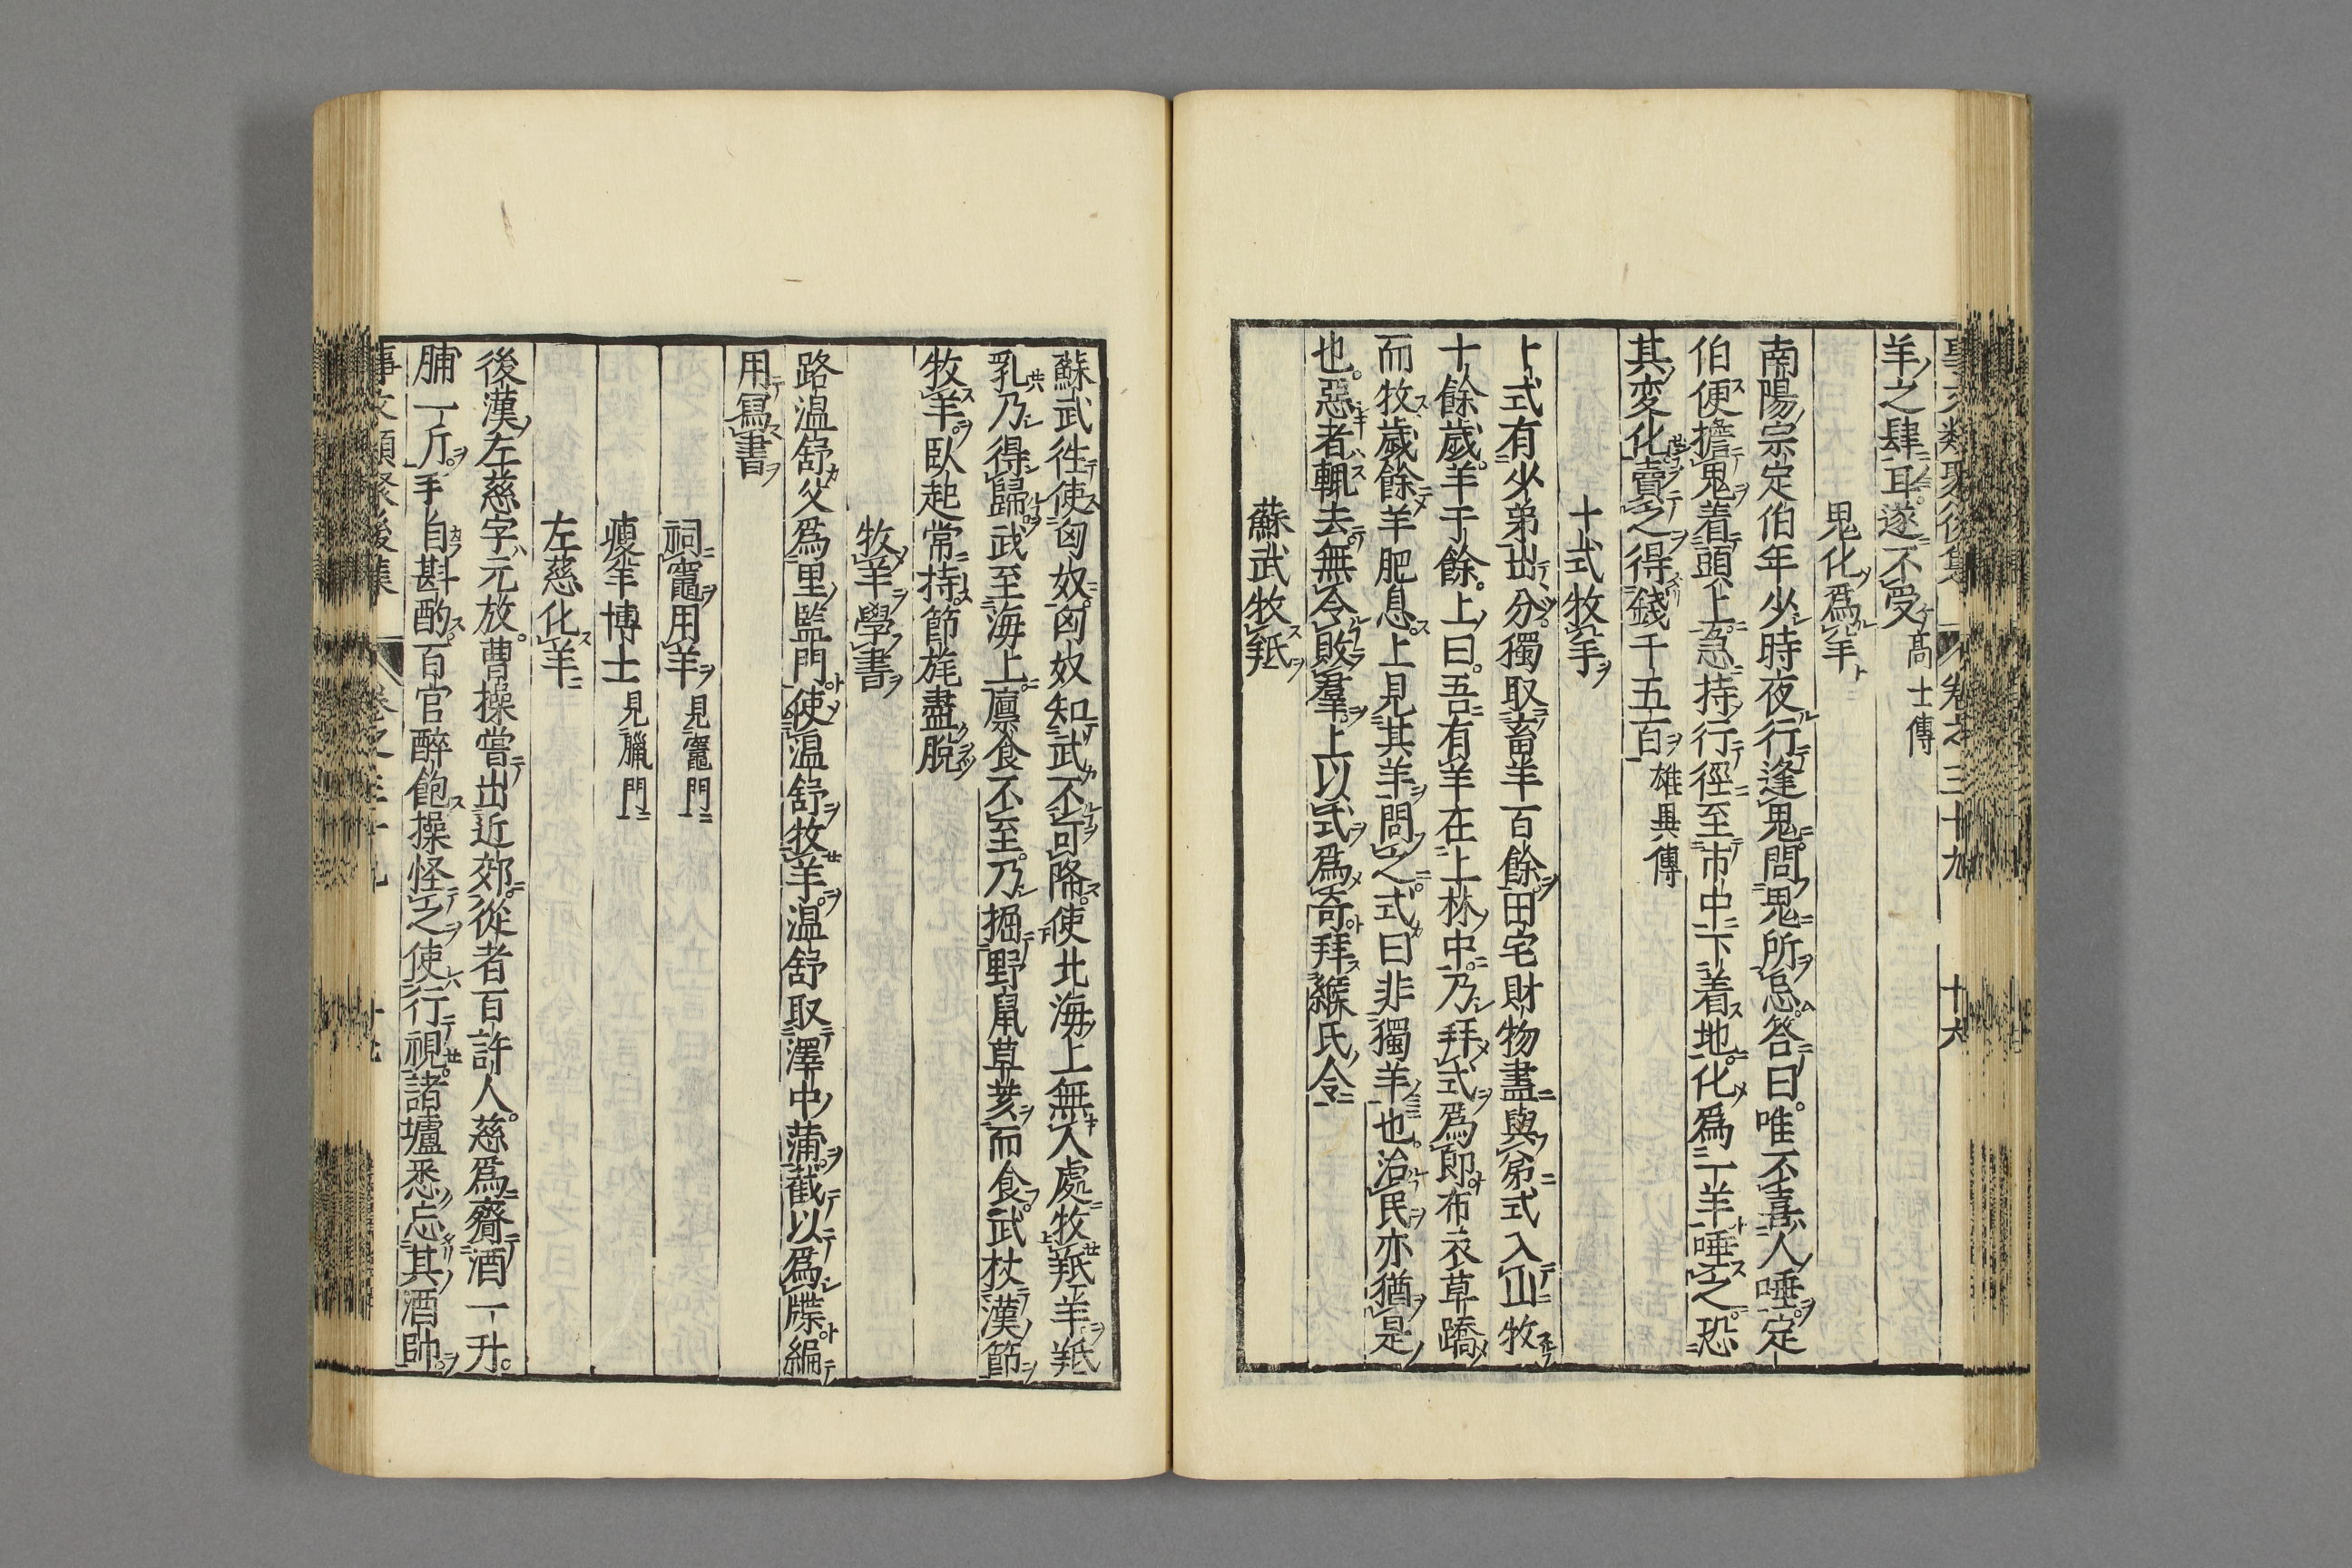 事文類聚後集　卷之三十九　十六
羊之肆耳遂不受高士傳
鬼化爲羊
南陽宗定伯年少時夜行逢鬼問鬼所忌答曰唯不喜人唾定
伯便擔鬼着頭上急持行徑至市中下着地化爲一羊唾之恐
其変化賣之得錢千五百雄異傳
十式牧羊
卜式有少弟出分獨取畜羊百餘田宅財物盡與弟式入山牧
十餘歲羊千餘上曰吾有羊在上林中乃拜式爲郎布衣草蹻
而牧歲餘羊肥息上見其羊問之式曰非獨羊也治民亦猶是
也惡者輒去無令敗羣上以式爲奇拜緱氏令
蘇武牧羝
蘇武徃使匈奴匈奴知武不可降使北海上無人處牧羝羊羝
乳乃得歸武至海上廩食不至乃掘野鼠草荄而食武杖漢節
牧羊臥起常持節旄盡脫
牧羊學書
路温舒父爲里監門使温舒牧羊温舒取澤中蒲截以爲牒編
用寫書
祠竈用羊見竈門
瘦羊博士見臘門
左慈化羊
後漢左慈字元放曹操嘗出近郊從者百許人慈爲齎酒一升
脯一斤手自斟酌百官醉飽操怪之使行視諸壚悉忘其酒帥
事文類聚後集　卷之三十九　十七